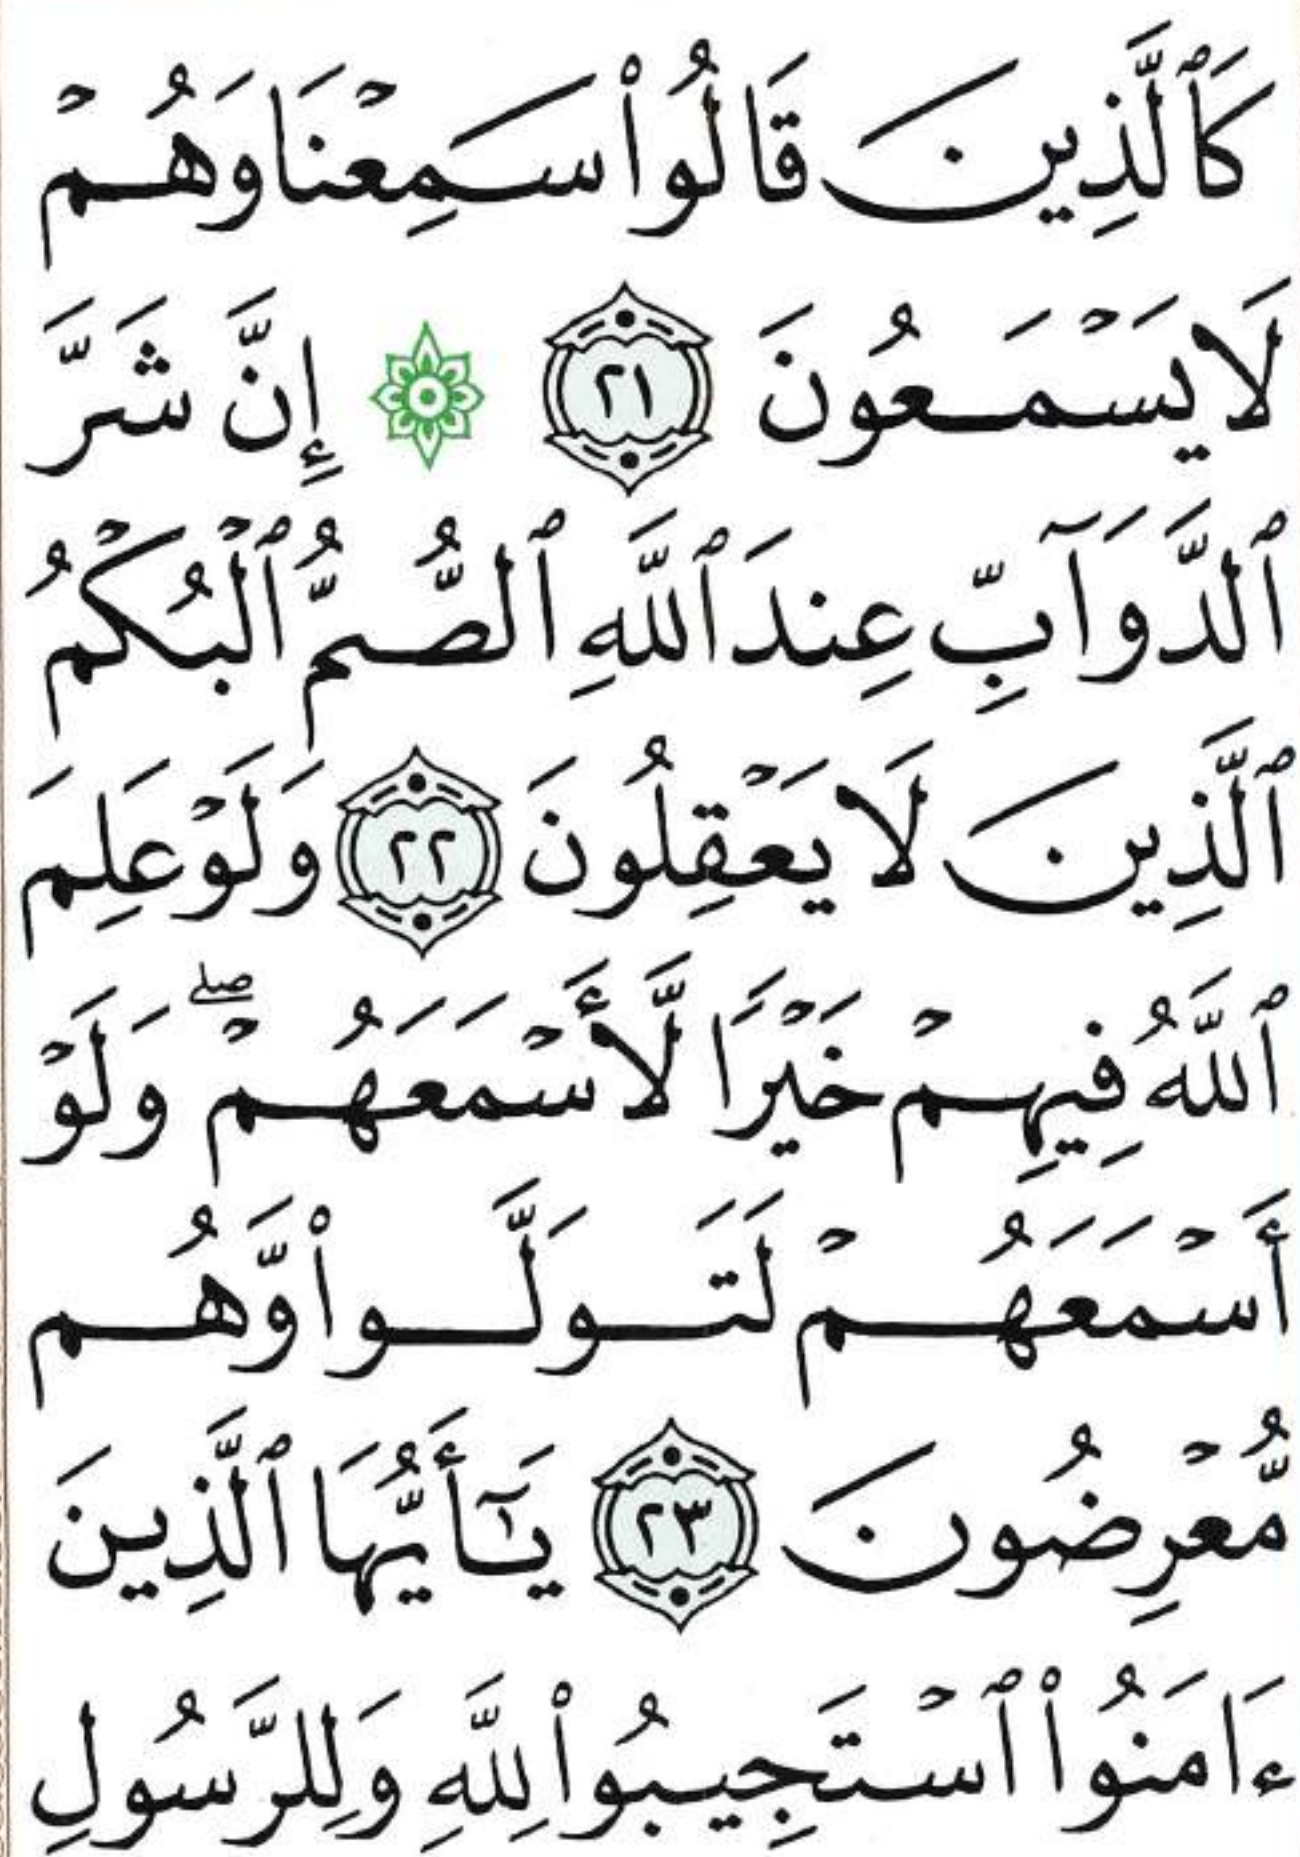 كَٱلَّذِينَ قَالُوا۟ سَمِعْنَا وَهُمْ
لَا يَسْمَعُونَ ٢١ إِنَّ شَرَّ
ٱلدَّوَآبِّ عِندَ ٱللَّهِ ٱلصُّمُّ ٱلْبُكْمُ
ٱلَّذِينَ لَا يَعْقِلُونَ ٢٢ وَلَوْ عَلِمَ
ٱللَّهُ فِيهِمْ خَيْرًا لَّأَسْمَعَهُمْ ۖ وَلَوْ
أَسْمَعَهُمْ لَتَوَلَّوا۟ وَّهُم
مُّعْرِضُونَ ٢٣ يَـٰٓأَيُّهَا ٱلَّذِينَ
ءَامَنُوا۟ ٱسْتَجِيبُوا۟ لِلَّهِ وَلِلرَّسُولِ